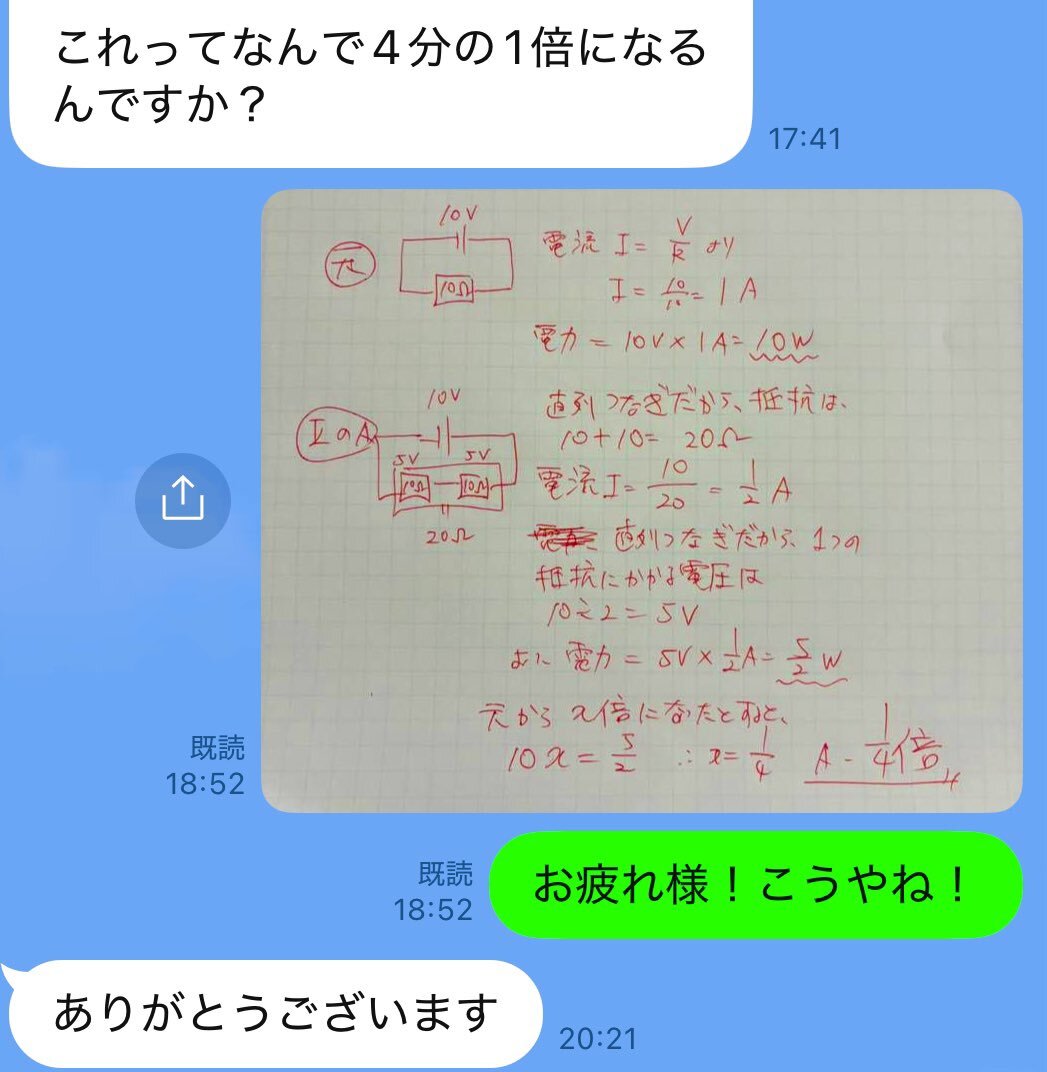 これってなんで4分の1倍になる
んですか？
17:41
元
10V
10Ω
電流 I = V/R より
I = 10/10 = 1 A
電力 = 10V × 1A = 10W
ⅡのA
10V
5V 5V
10Ω 10Ω
20Ω
直列つなぎだから、抵抗は、
10+10= 20Ω
電流 I = 10/20 = 1/2 A
直列つなぎだから、1つの
抵抗にかかる電圧は
10÷2 = 5V
よって 電力 = 5V × 1/2A = 5/2 W
元から x倍になったとすると、
10x = 5/2 ∴ x = 1/4 A - 1/4倍
既読
18:52
お疲れ様！こうやね！
既読
18:52
ありがとうございます
20:21